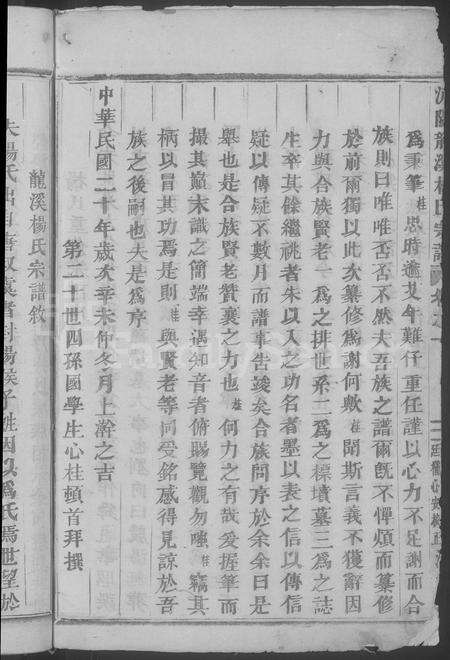 龍溪楊氏宗譜
爲秉筆桂思時邁艾年難任重任謹以心力不足謝而合
族則曰唯唯否否不然夫吾族之譜爾旣不憚煩而纂修
於前爾獨以此次纂修爲謝何歟桂聞斯言義不獲辭因
力與合族賢老一爲之排世系二爲之標墳墓三爲之誌
生卒其餘繼祧者朱以入之功名者墨以表之信以傳信
疑以傳疑不數月而譜事告竣矣合族問序於余余曰是
舉也是合族賢老贊襄之力也桂何力之有哉爰握筆而
撮其巔末識之簡端幸遇知音者俯賜覽觀勿嗤桂竊其
柄以冒其功焉是則桂與賢老等同受銘感得見諒於吾
族之後嗣也夫是爲序
中華民國二十年歲次辛未仲冬月上澣之吉
第二十世四孫國學生心桂頓首拜撰
龍溪楊氏宗譜敘
夫楊氏出自唐叔虞者封楊侯子姓因以爲氏焉世望於